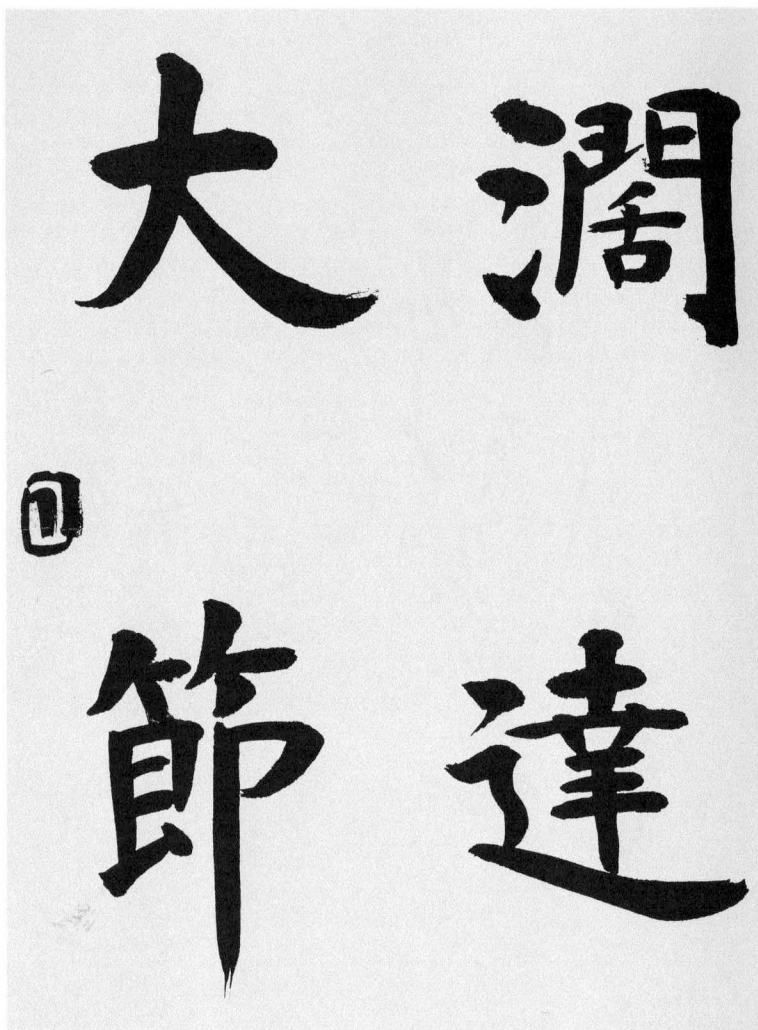 濶達
大節